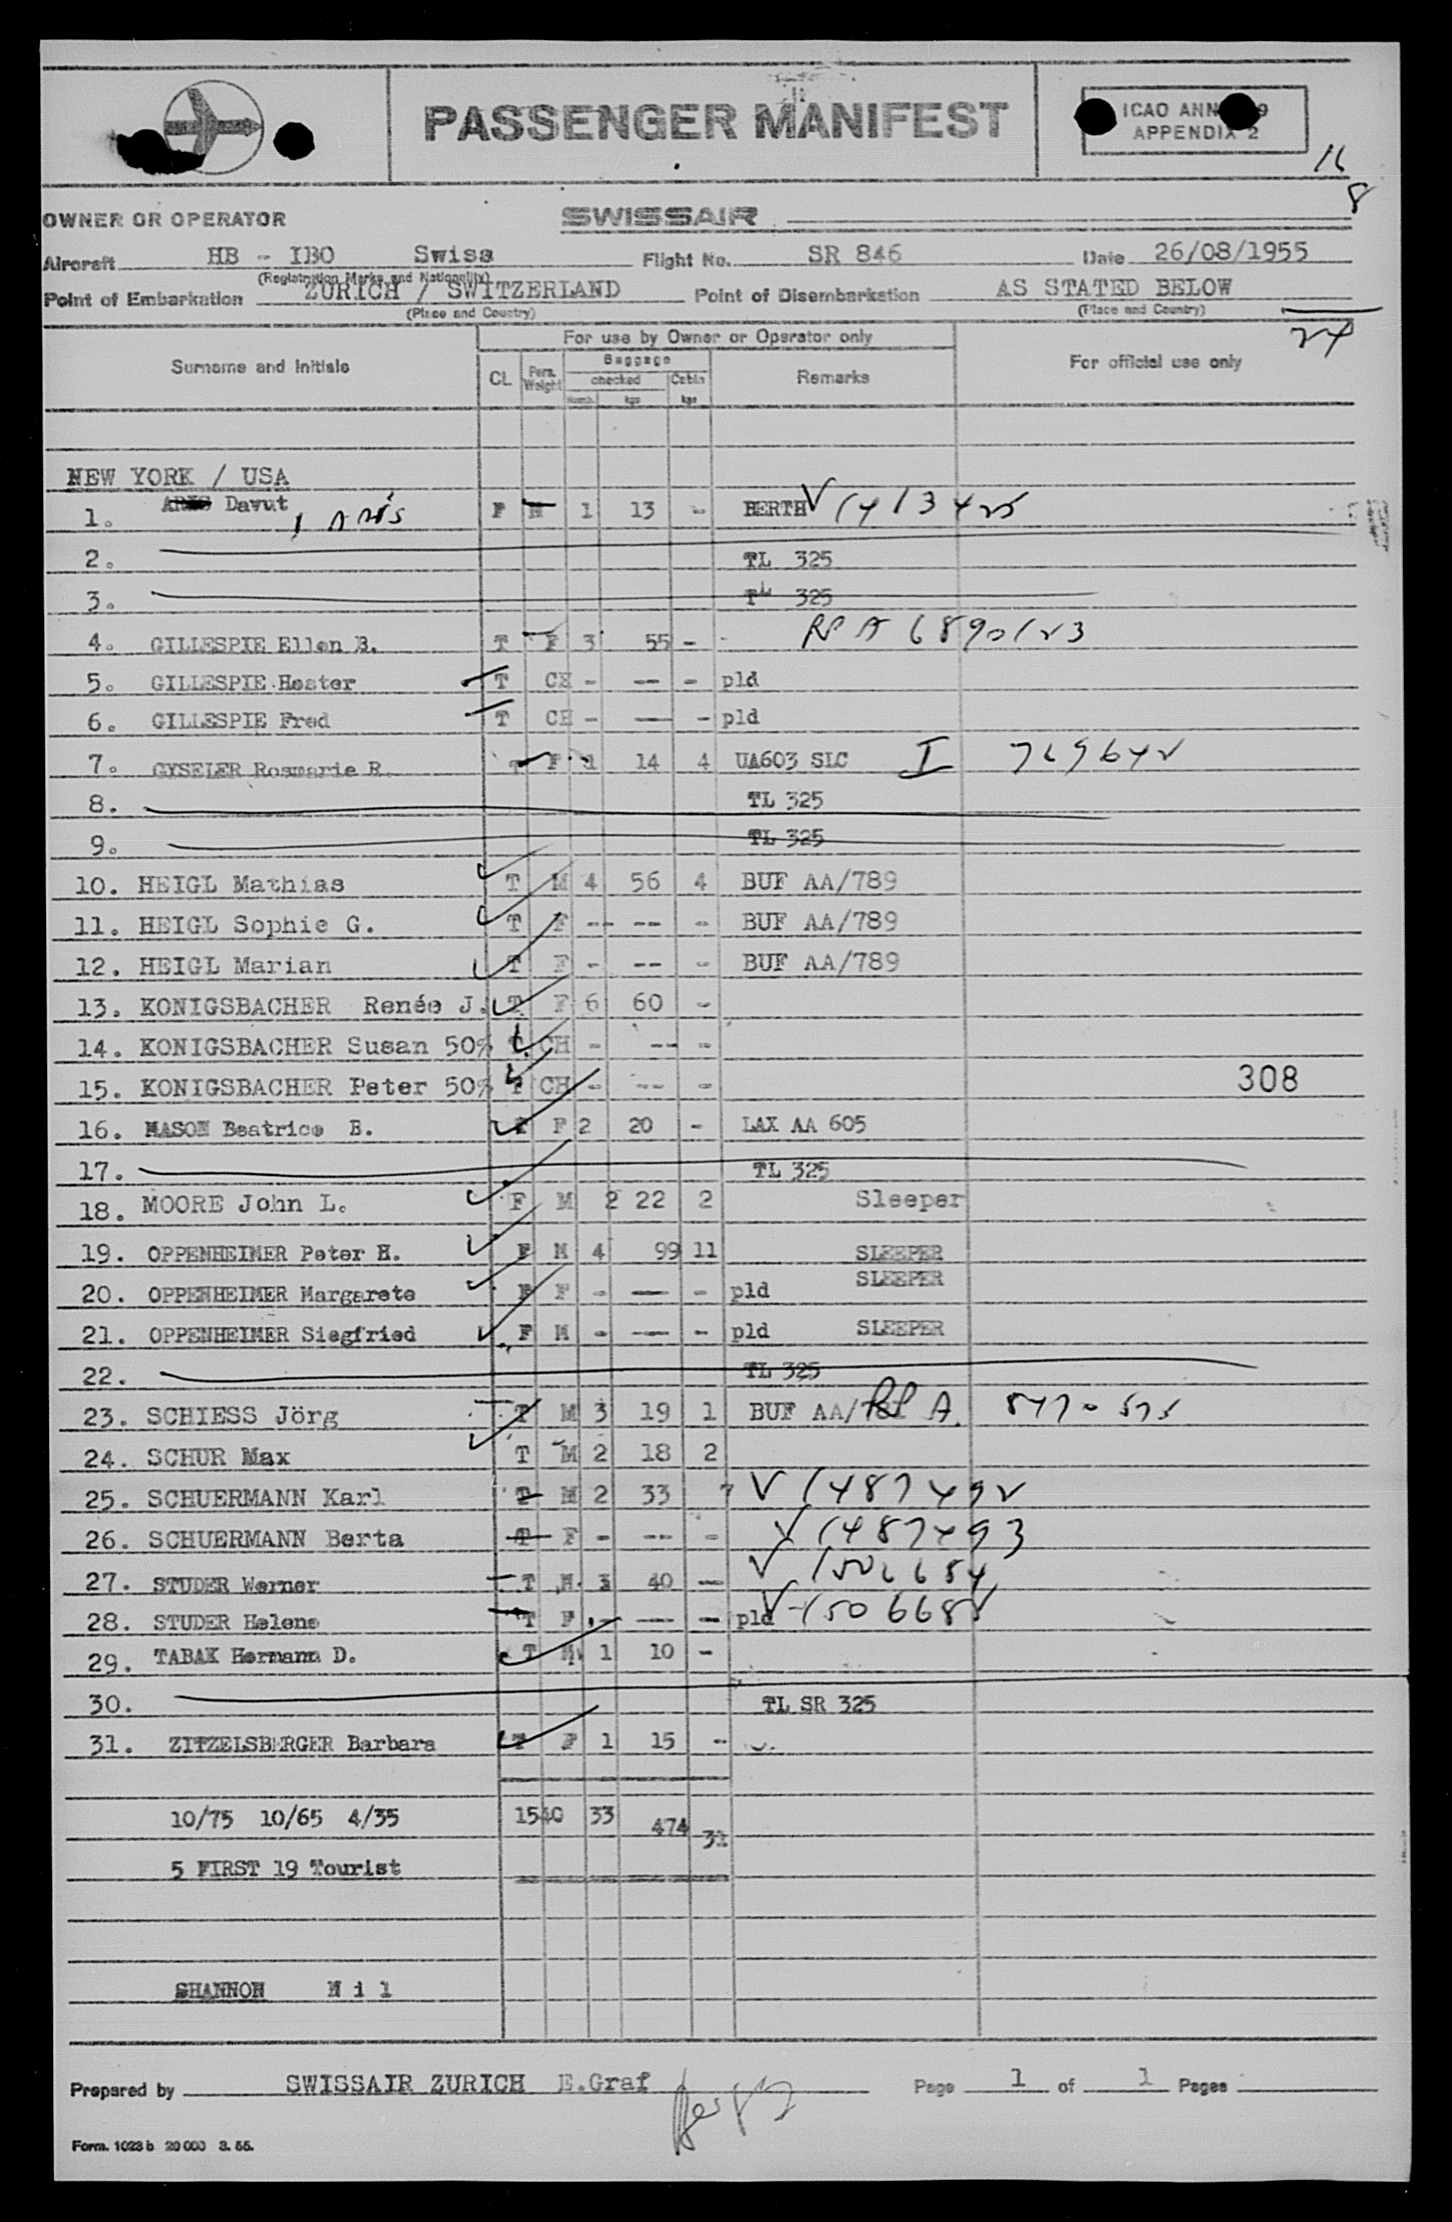 PASSENGER MANIFEST
ICAO ANN 9
APPENDIX 2
16
8
OWNER OR OPERATOR SWISSAIR
Aircraft HB - IBO Swiss Flight No. SR 846 Date 26/08/1955
(Registration Marks and Nationality)
Point of Embarkation ZURICH / SWITZERLAND Point of Disembarkation AS STATED BELOW
(Place and Country) (Place and Country)
24
For use by Owner or Operator only
Surname and Initials CL. Pers. Weight Baggage checked Numb. kgs Cabin kgs Remarks For official use only
NEW YORK / USA
1. Davut F M 1 13 - BERTH V 1413425
2. TL 325
3. TL 325
4. GILLESPIE Ellen B. T F 3 55 - RP A 6890123
5. GILLESPIE Hester T CH - -- - pld
6. GILLESPIE Fred T CH - -- - pld
7. GYSELER Rosmarie R. T F 1 14 4 UA603 SLC I 769642
8. TL 325
9. TL 325
10. HEIGL Mathias T M 4 56 4 BUF AA/789
11. HEIGL Sophie G. T F -- -- - BUF AA/789
12. HEIGL Marian T F - -- - BUF AA/789
13. KONIGSBACHER Renée J. T F 6 60 -
14. KONIGSBACHER Susan 50% T CH - -- -
15. KONIGSBACHER Peter 50% T CH - -- - 308
16. MASON Beatrice E. F F 2 20 - LAX AA 605
17. TL 325
18. MOORE John L. F M 2 22 2 Sleeper
19. OPPENHEIMER Peter H. F M 4 99 11 SLEEPER
20. OPPENHEIMER Margarete F F - -- - pld SLEEPER
21. OPPENHEIMER Siegfried F M - -- - pld SLEEPER
22. TL 325
23. SCHIESS Jörg T M 3 19 1 BUF AA/ RP A
24. SCHUR Max T M 2 18 2
25. SCHUERMANN Karl T M 2 33 7 V 1487492
26. SCHUERMANN Berta T F - -- - V 1487493
27. STUDER Werner T M 3 40 -- V 1506684
28. STUDER Helene T F - -- - pld V 150668
29. TABAK Hermann D. T M 1 10 -
30. TL SR 325
31. ZITZELSBERGER Barbara T F 1 15 -
10/75 10/65 4/35 1540 33 474
5 FIRST 19 Tourist
SHANNON N i l
Prepared by SWISSAIR ZURICH E.Graf Page 1 of 1 Pages
Form. 1023 b 20 000 3. 55.